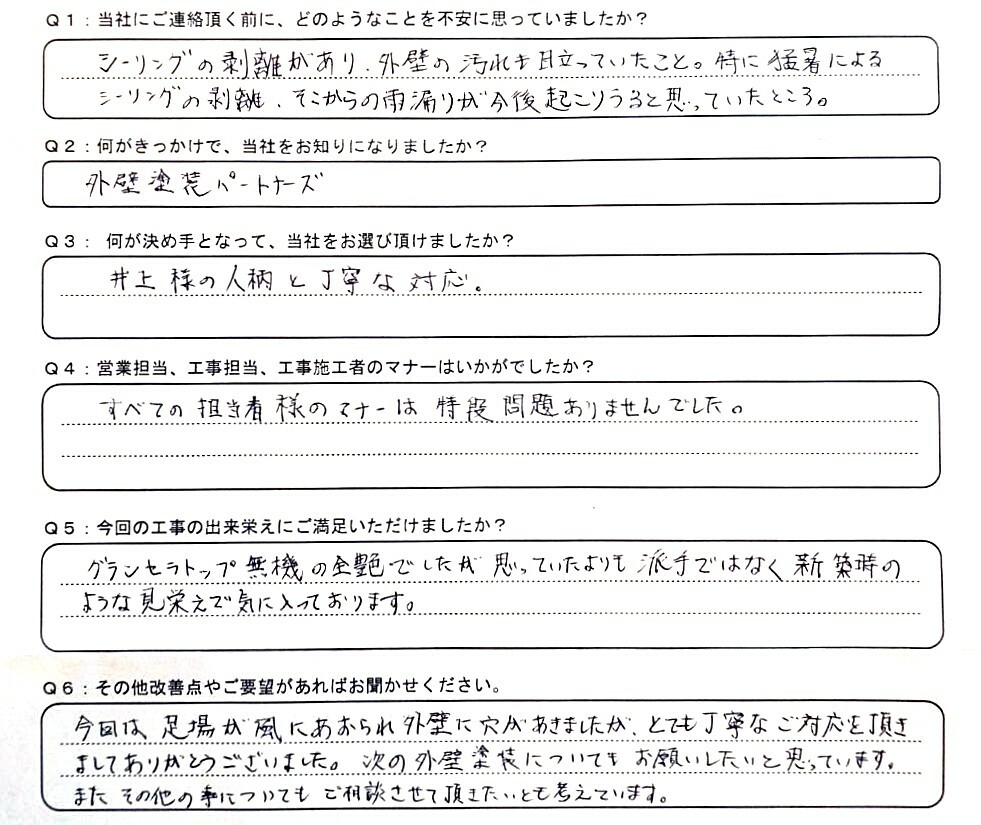 Q1：当社にご連絡頂く前に、どのようなことを不安に思っていましたか？
シーリングの剥離があり、外壁の汚れも目立っていたこと。特に猛暑による
シーリングの剥離、そこからの雨漏りが今後起こりうると思っていたところ。
Q2：何がきっかけで、当社をお知りになりましたか？
外壁塗装パートナーズ
Q3： 何が決め手となって、当社をお選び頂けましたか？
井上様の人柄と丁寧な対応。
Q4：営業担当、工事担当、工事施工者のマナーはいかがでしたか？
すべての担当者様のマナーは特段問題ありませんでした。
Q5：今回の工事の出来栄えにご満足いただけましたか？
グランセラトップ無機の全艶でしたが思っていたよりも派手ではなく新築時の
ような見栄えで気に入っております。
Q6：その他改善点やご要望があればお聞かせください。
今回は、足場が風にあおられ外壁に穴があきましたが、とても丁寧なご対応を頂き
ましてありがとうございました。次の外壁塗装についてもお願いしたいと思っています。
またその他の事についてもご相談させて頂きたいとも考えています。